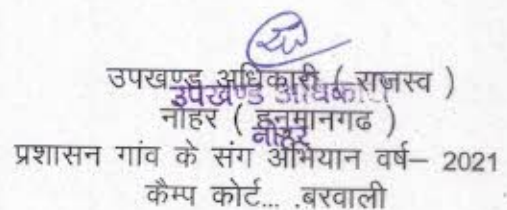 उपखण्ड अधिकारी ( राजस्व )
उपखण्ड अधिकारी
नोहर ( हनुमानगढ )
नोहर
प्रशासन गांव के संग अभियान वर्ष– 2021
कैम्प कोर्ट... .बरवाली